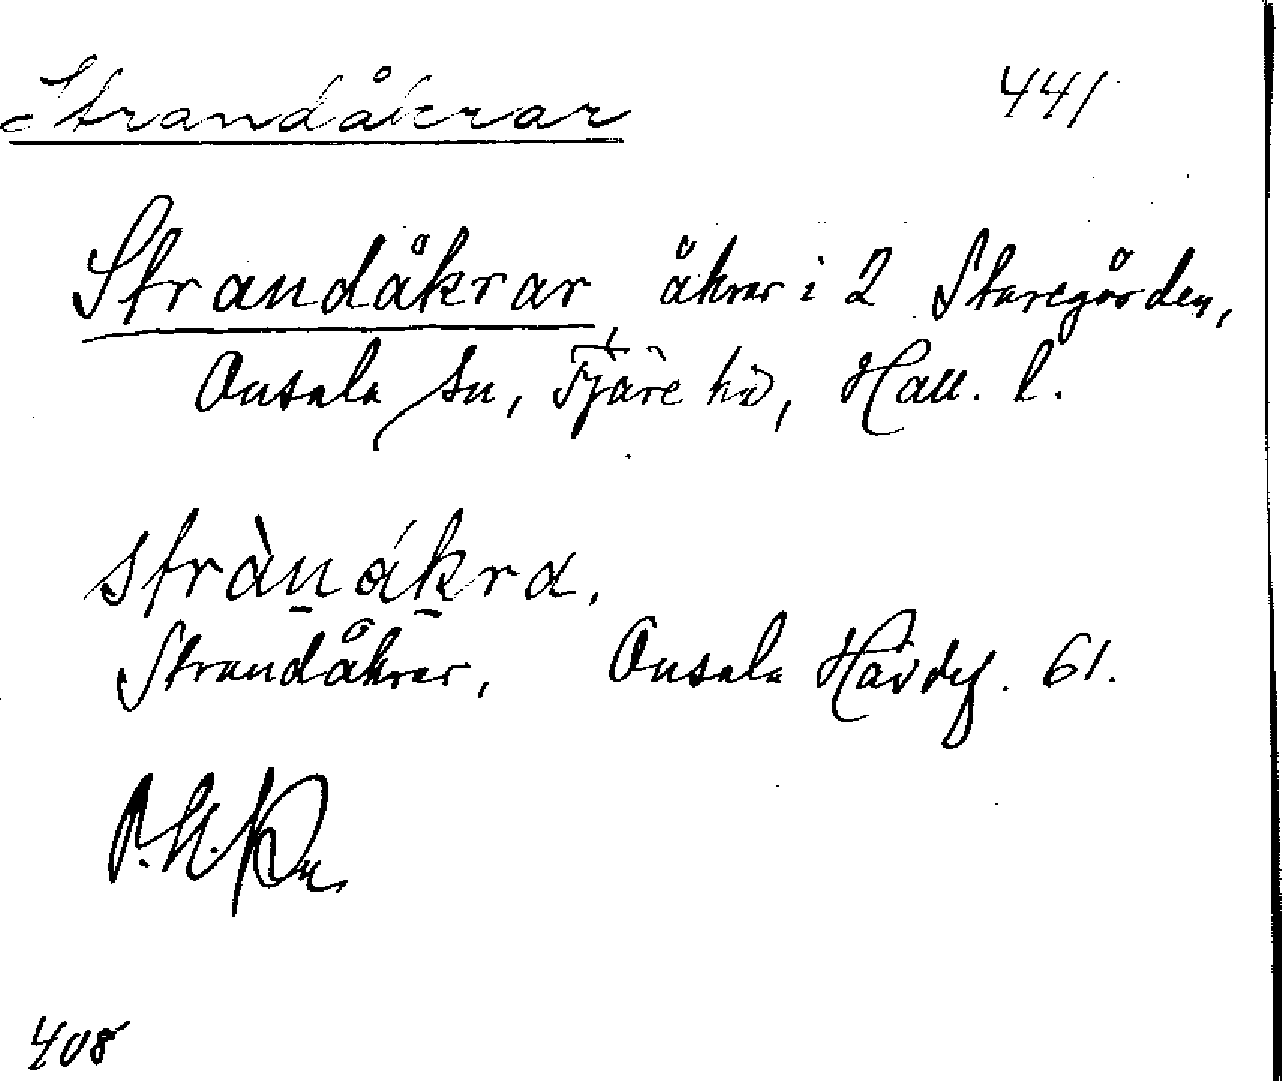 Strandåkrar 441
Strandåkrar, åkrar i 2 Staregården,
Onsala sn, Fjäre hd, Hall. l.
stràn̲ åk̲ra.
Strandåkrar, Onsala Hävdef. 61.
408